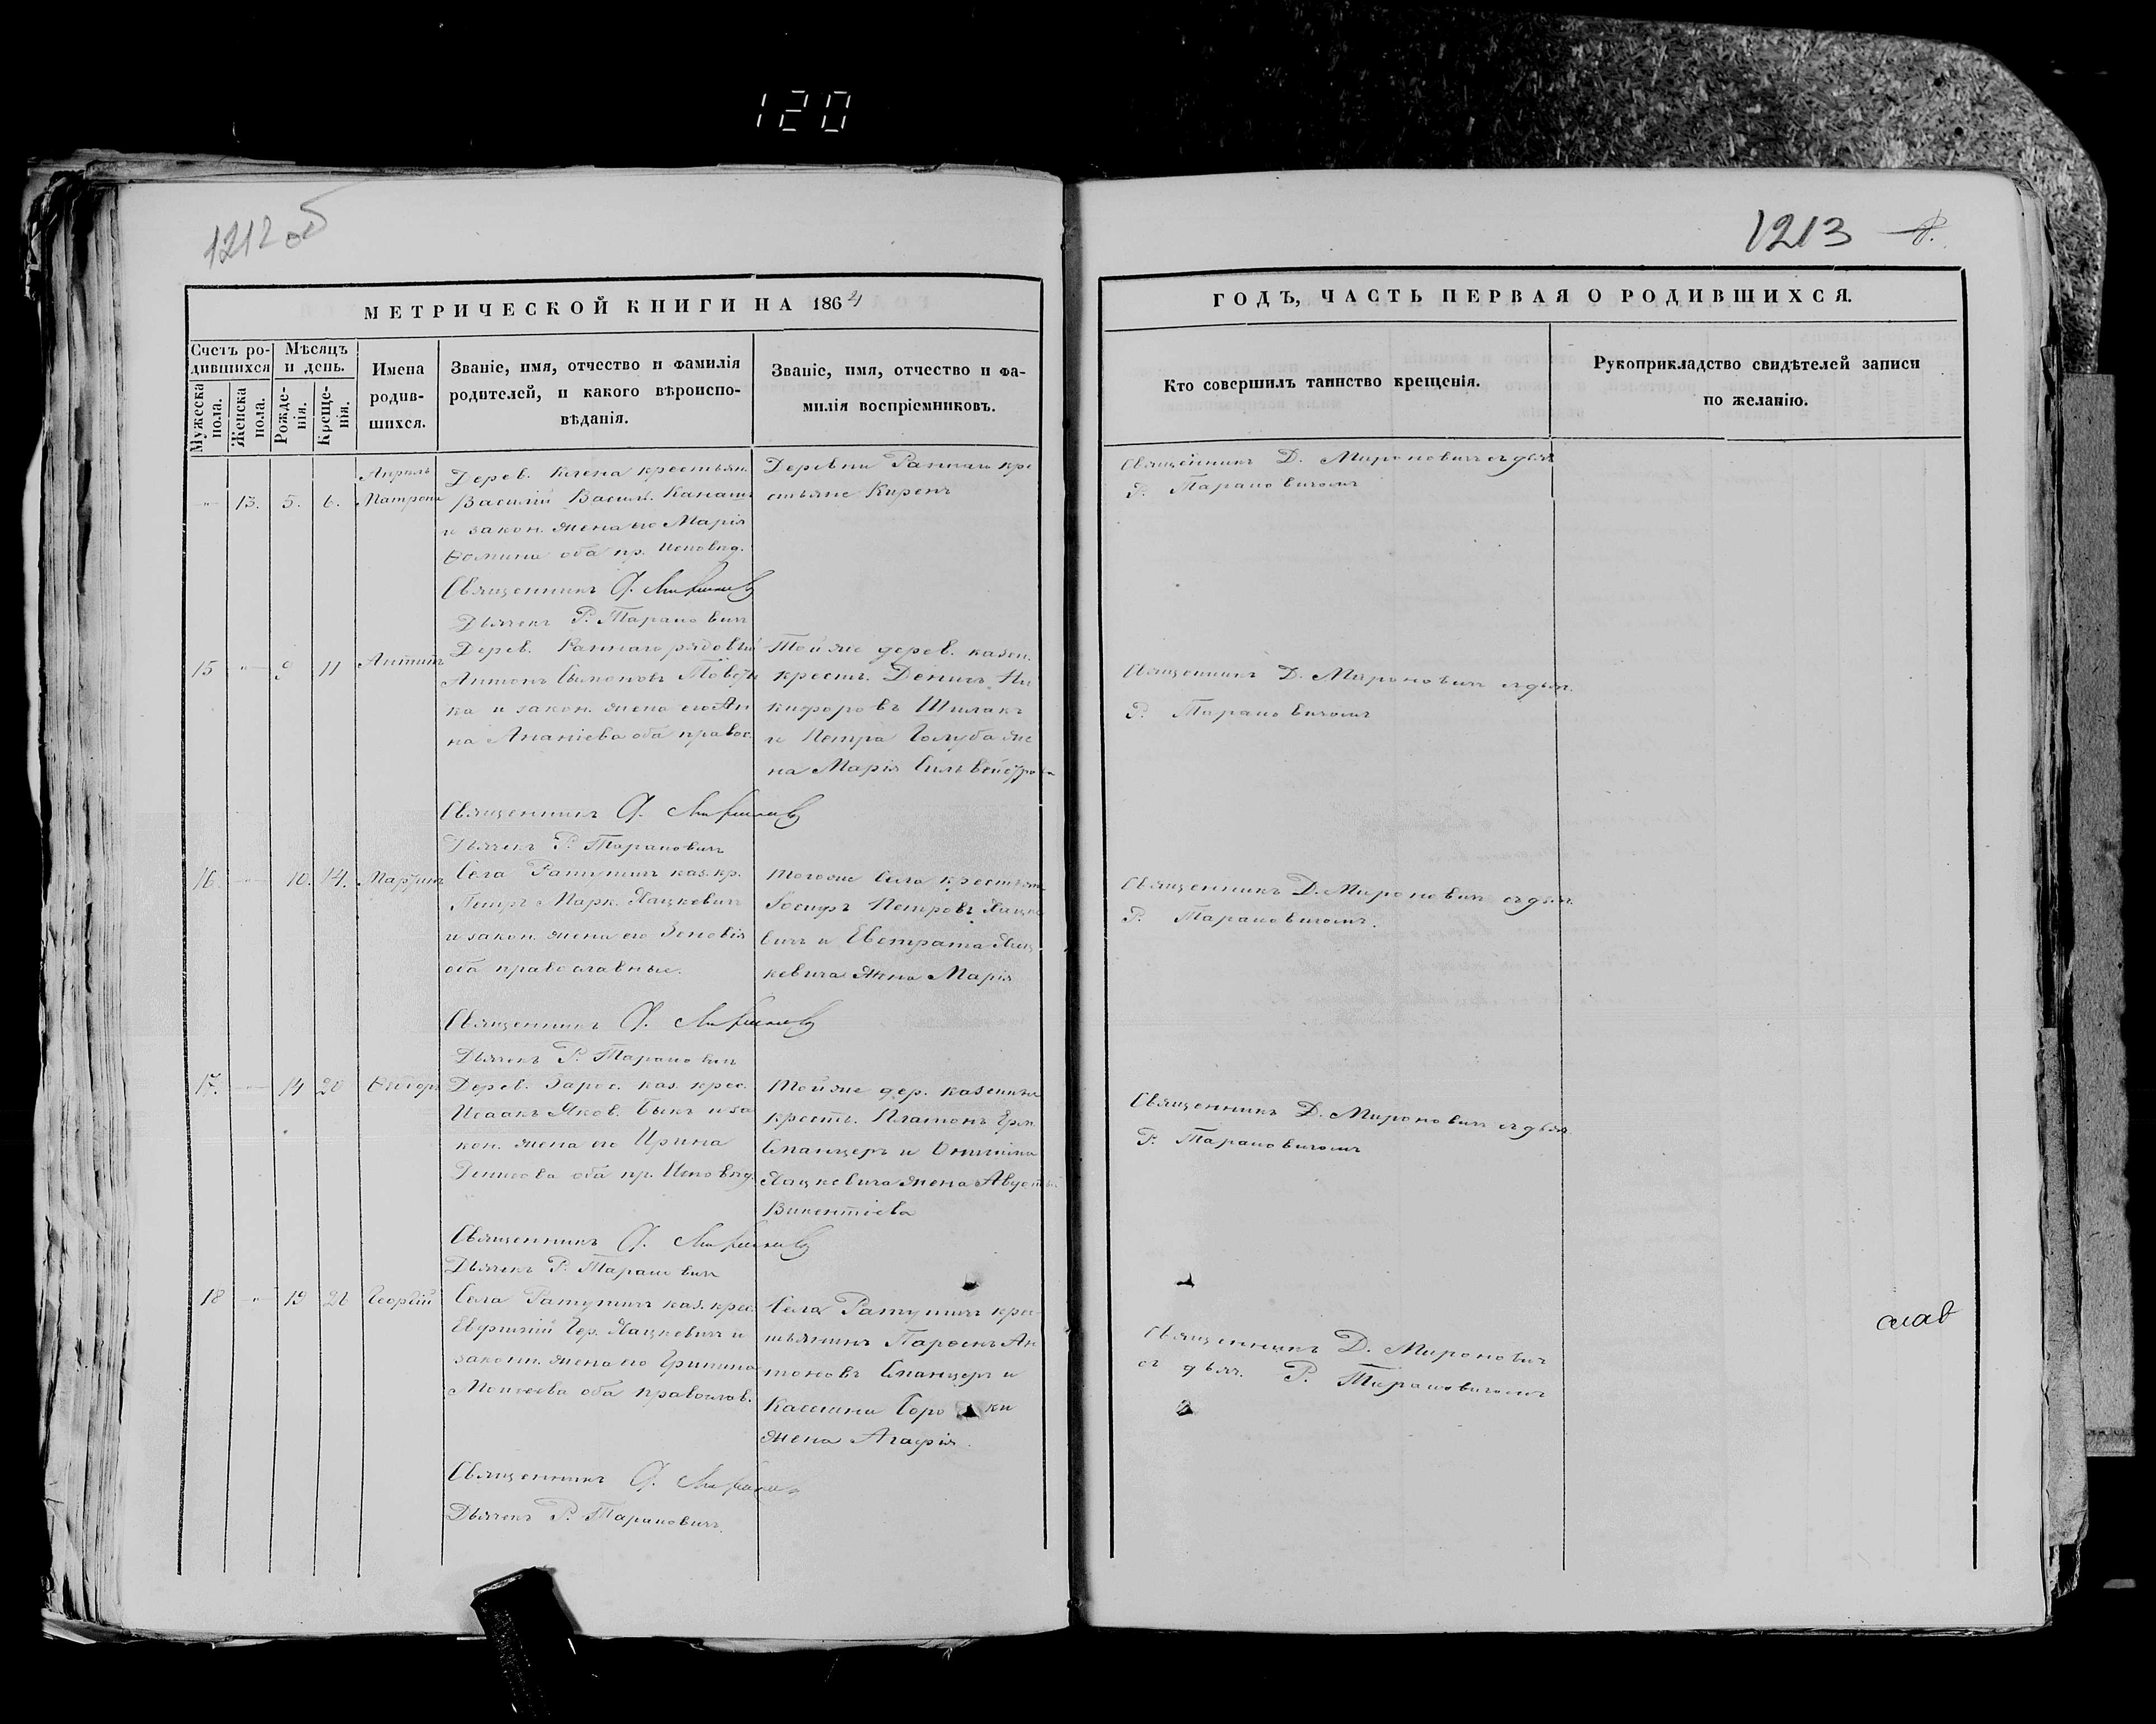 120
1212 об
1213
МЕТРИЧЕСКОЙ КНИГИ НА 1864
ГОДЪ, ЧАСТЬ ПЕРВАЯ О РОДИВШИХСЯ.
Счетъ ро-
дившихся
Мужеска
пола.
Женска
пола.
Мѣсяцъ
и день.
Рожде-
нія.
Креще-
нія.
Имена
родив-
шихся.
Званіе, имя, отчество и фамилія
родителей, и какого вѣроиспо-
вѣданія.
Званіе, имя, отчество и фа-
милія воспріемниковъ.
Кто совершилъ таинство крещенія.
Рукоприкладство свидѣтелей записи
по желанію.
Апрѣль
13. 5. 6.
Дерев. крестьян.
Василій Васил.
и закон. жена его Марія
Ѳомина оба пр. исповѣд.
Священникъ
Дьячекъ Р. Тарановичъ
Деревни кре
стьяне
Священникъ Д. Мироновичъ съ дьяч.
Р. Тарановичомъ
15 9 11
Дерев. рядовый
Антонъ Сымоновъ
ка и закон. жена его Ан
на Ананіева оба правос.
Священникъ
Дьячекъ Р. Тарановичъ
Той же дерев. казен.
крест. Денисъ Ни
кифоровъ Шилакъ
и Петра Голуба же
на Марія Сильвестрова
Священникъ Д. Мироновичъ съ дьяч.
Р. Тарановичомъ
16 10. 14. Мартинъ
Села Ратутичъ каз. кр.
Петръ Марк. Яцкевичъ
и закон. жена его Зеновія
оба православные.
Священникъ
Дьячекъ Р. Тарановичъ
Того же села крестьян.
Іосифъ Петровъ Яцке
вичъ и Евстрата Яц
кевича жена Марія
Священникъ Д. Мироновичъ съ дьяч.
Р. Тарановичомъ.
17. 14 20 Ѳеодоръ
Дерев. каз. крес.
Исаакъ Яков. Быкъ и за
кон. жена его Ирина
Денисова оба пр. исповѣд.
Священникъ
Дьячекъ Р. Тарановичъ
Той же дер. казенный
крест. Платонъ
и
Яцкевича жена
Викентіева
Священникъ Д. Мироновичъ съ дьяч.
Р. Тарановичомъ
18 19 26 Георгій
Села Ратутичъ каз. крес.
Евфимій Гер. Яцкевичъ и
законн. жена его
Моисеева оба православ.
Священникъ
Дьячекъ Р. Тарановичъ.
Села Ратутичъ крес
тьянинъ Ан
тоновъ и
жена Агафія.
Священникъ Д. Мироновичъ
съ дьяч. Р. Тарановичомъ
слав